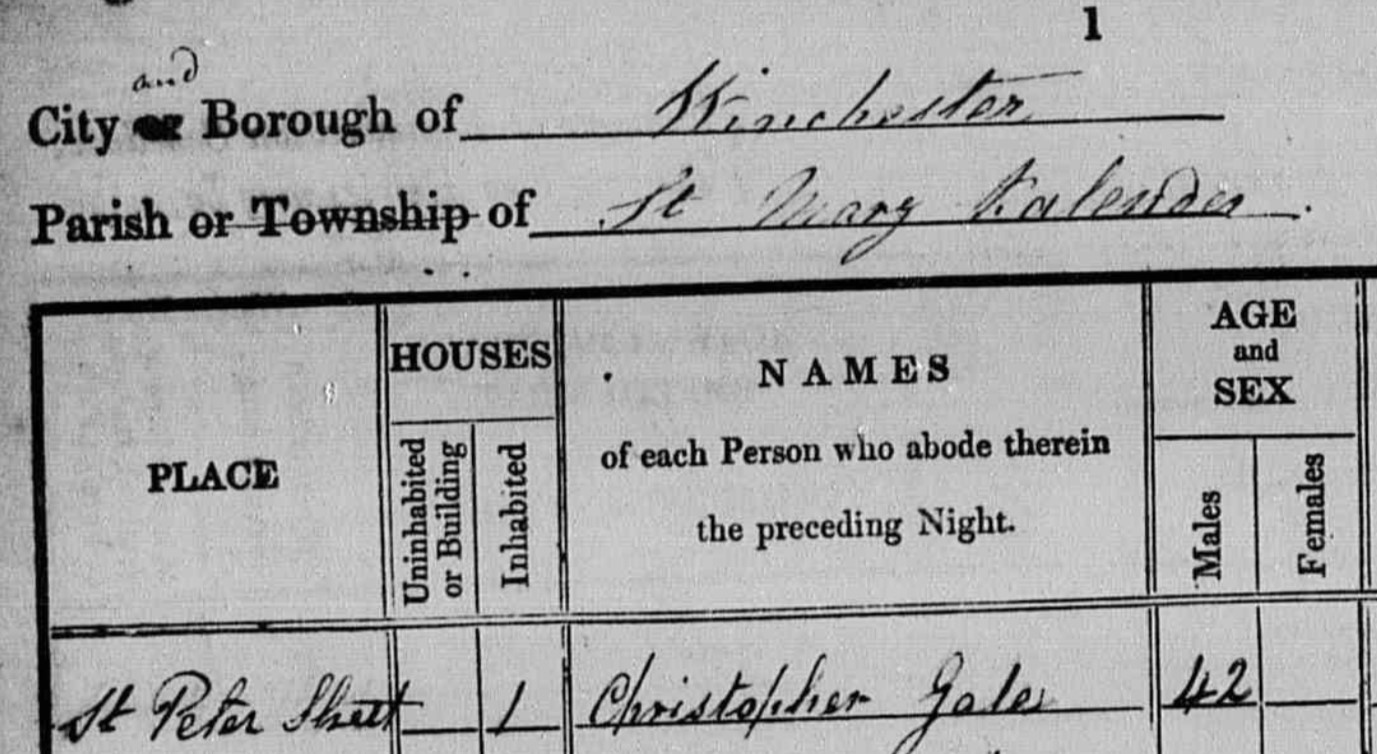 1
and
City or Borough of Winchester
Parish or Township of St Mary Kalender.
PLACE
HOUSES
Uninhabited or Building
Inhabited
NAMES
of each Person who abode therein
the preceding Night.
AGE
and
SEX
Males
Females
St Peter Street 1 Christopher Gale 42